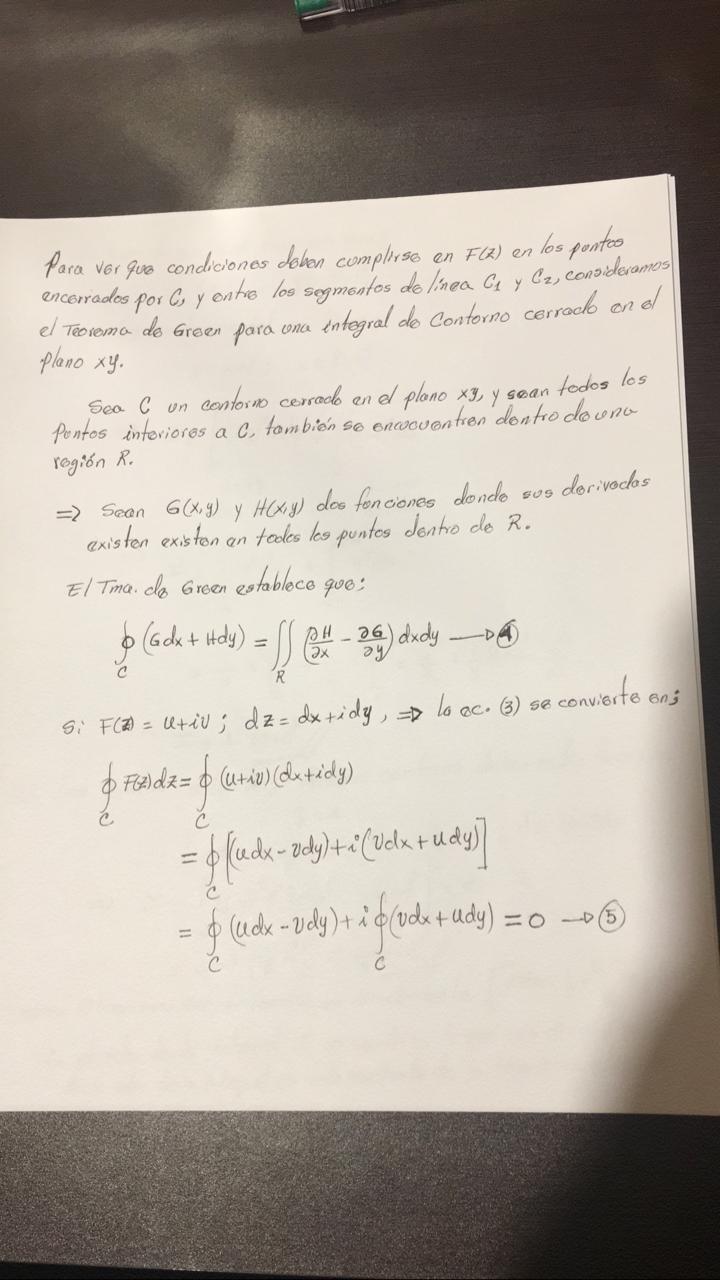 Para ver que condiciones deben cumplirse en F(z) en los puntos
encerrados por C, y entre los segmentos de línea C₁ y C₂, consideramos
el Teorema de Green para una integral de Contorno cerrado en el
plano xy.
Sea C un contorno cerrado en el plano xy, y sean todos los
Puntos interiores a C, también se encuentren dentro de una
región R.
⇒ Sean G(x,y) y H(x,y) dos funciones donde sus derivadas
existen existen en todos los puntos dentro de R.
El Tma. de Green establece que:
∮_C (Gdx + Hdy) = ∬_R (∂H/∂x − ∂G/∂y) dxdy → ④
Si F(z) = u+iv ; dz = dx+idy, ⇒ la ec. (3) se convierte en;
∮_C F(z)dz = ∮_C (u+iv)(dx+idy)
= ∮_C [(udx − vdy) + i(vdx + udy)]
= ∮_C (udx − vdy) + i ∮_C (vdx + udy) = 0 → ⑤